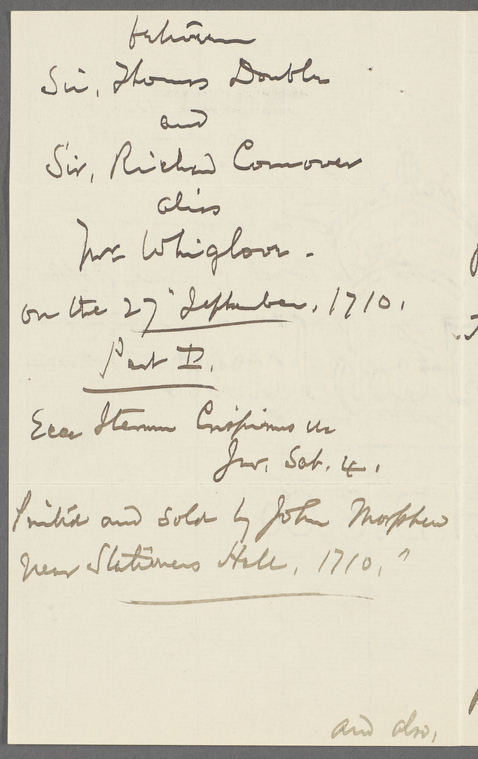 between
Sir, Thomas Double
and
Sir, Richard Comover
alias
Mr Whiglove.
on the 27 September, 1710.
Part I.
Ecce Iterum Crispinus
Juv. Sat. 4.
Printed and sold by John Morphew
near Stationers Hall, 1710."
and also,